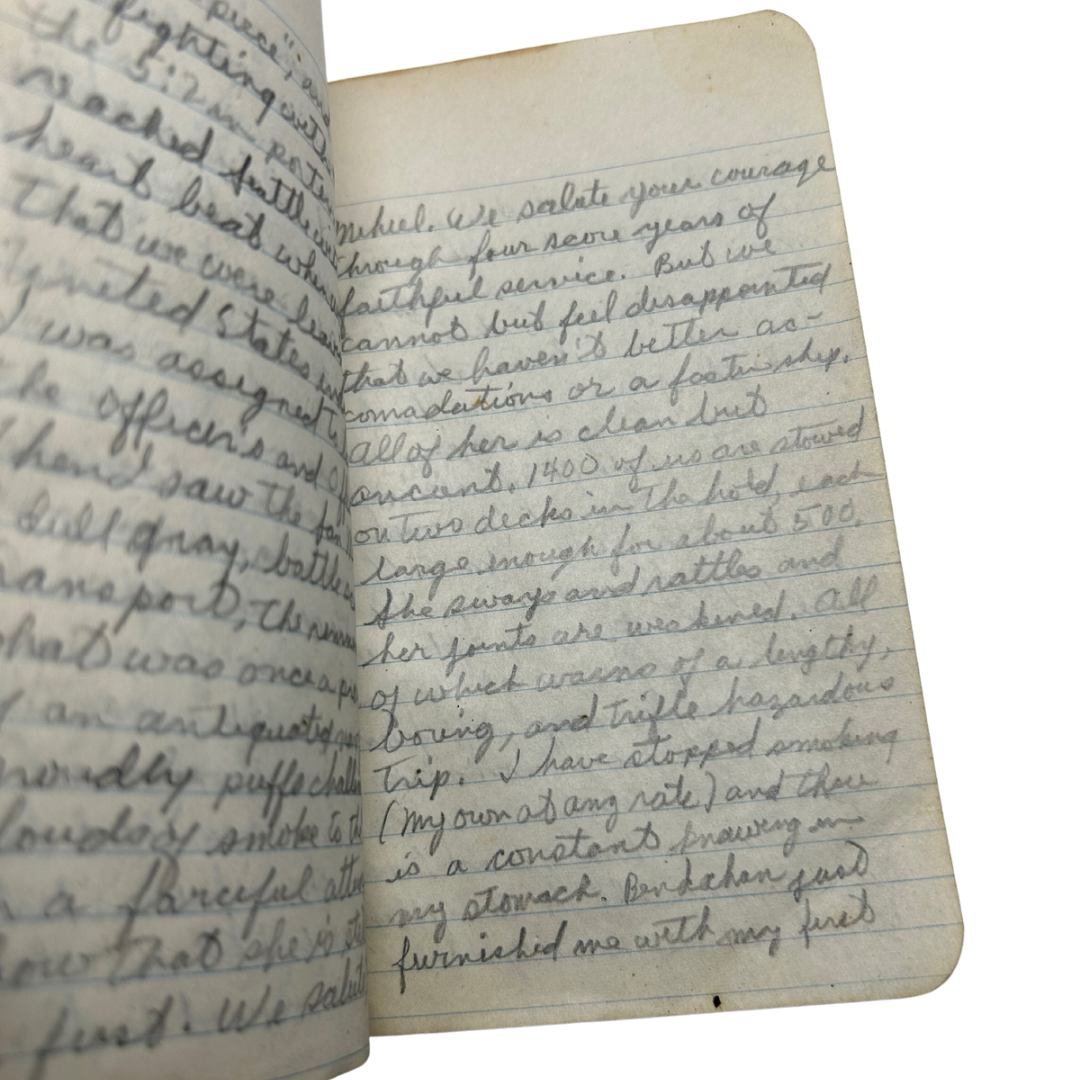 piece", and
fighting with
the 5:2 in port
reached Seattle
heart beat when
That we were leav
United States
I was assigned to
the officer's and
when I saw the
dull gray, battle
ransport, The
what was once a
of an antiquated
proudly puffs chall
louds of smoke to th
n a farciful atte
how that she is
first. We salute
We salute your courage
through four score years of
faithful service. But we
cannot but feel disappointed
that we haven't better ac-
comadations or a faster ship.
All of her is clean but
ancient. 1400 of us are stowed
on two decks in The hold, each
large enough for about 500.
She sways and rattles and
her joints are weakened. All
of which warns of a lengthy,
boring, and trifle hazardous
trip. I have stopped smoking
(My own at any rate) and there
is a constant knawing in
my stomach. just
furnished me with my first